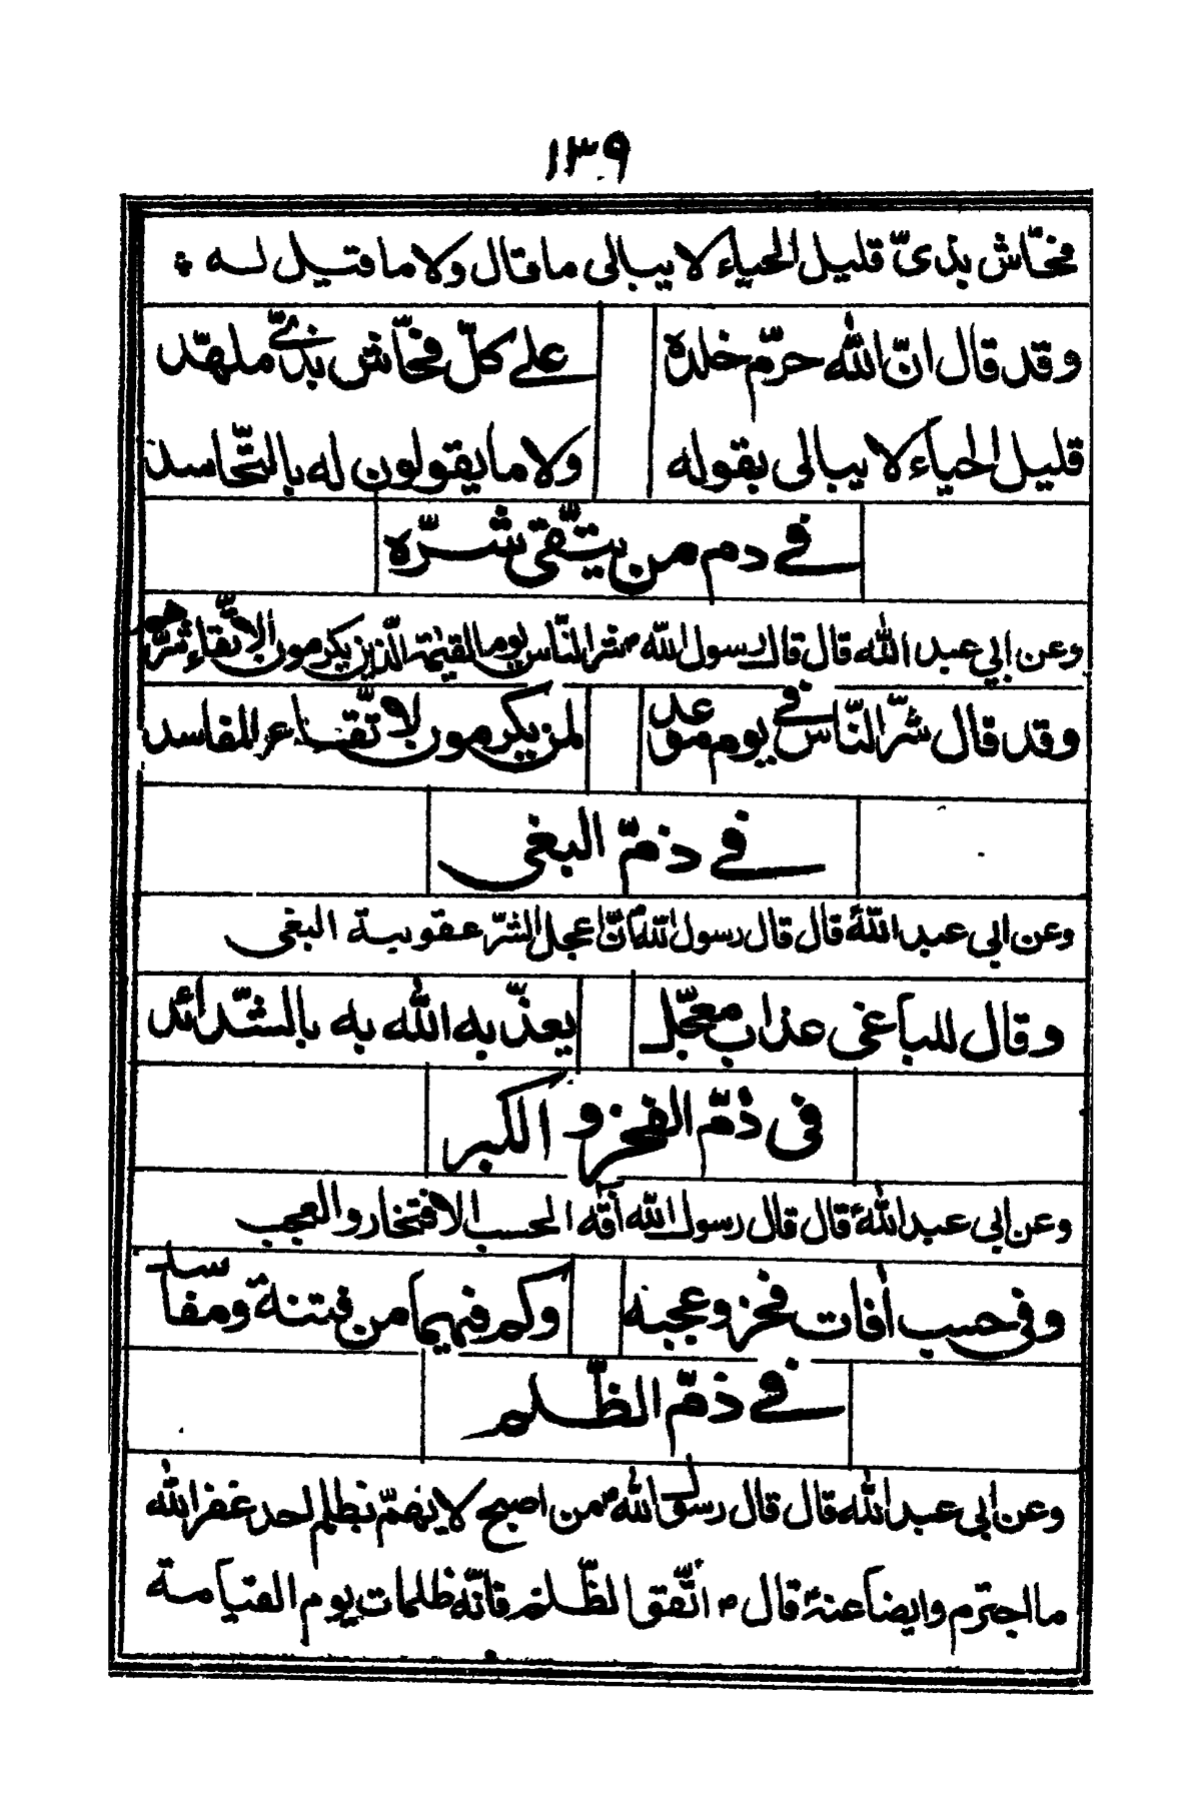 ١٣٩
فحّاش بذىّ قليل الحياء لا يبالى ما قال ولا ما قيل له
وقد قال انّ الله حرّم خلده على كلّ فحّاش بذىّ ملهّد
قليل الحياء لا يبالى بقوله ولا ما يقولون له بالتّحاسد
فى ذم من يتّقى شرّه
وعن ابي عبد الله قال قال رسول الله ص شر النّاس يوم القيمة الّذين يكرمون الاتّقاء شرّهم
وقد قال شرّ النّاس فى يوم موعد لمن يكرمون لاتّقاء عن المفاسد
فى ذمّ البغى
وعن ابي عبد الله قال قال رسول الله انّ اعجل الشّر عقوبة البغى
وقال للباغى عذاب معجّل يعذّبه الله به بالشّدائد
فى ذمّ الفخر و الكبر
وعن ابي عبد الله قال قال رسول الله أفة الحسب الافتخار والعجب
وفى حسب أفات فخر وعجبه وكم فيهما من فتنة ومفاسد
فى ذمّ الظّلم
وعن ابي عبد الله قال قال رسول الله ص من اصبح لا يهمّ بظلم احد غفر الله
ما اجترم وايضا عنه قال ص اتّقوا الظّلم فانّه ظلمات يوم القيامة